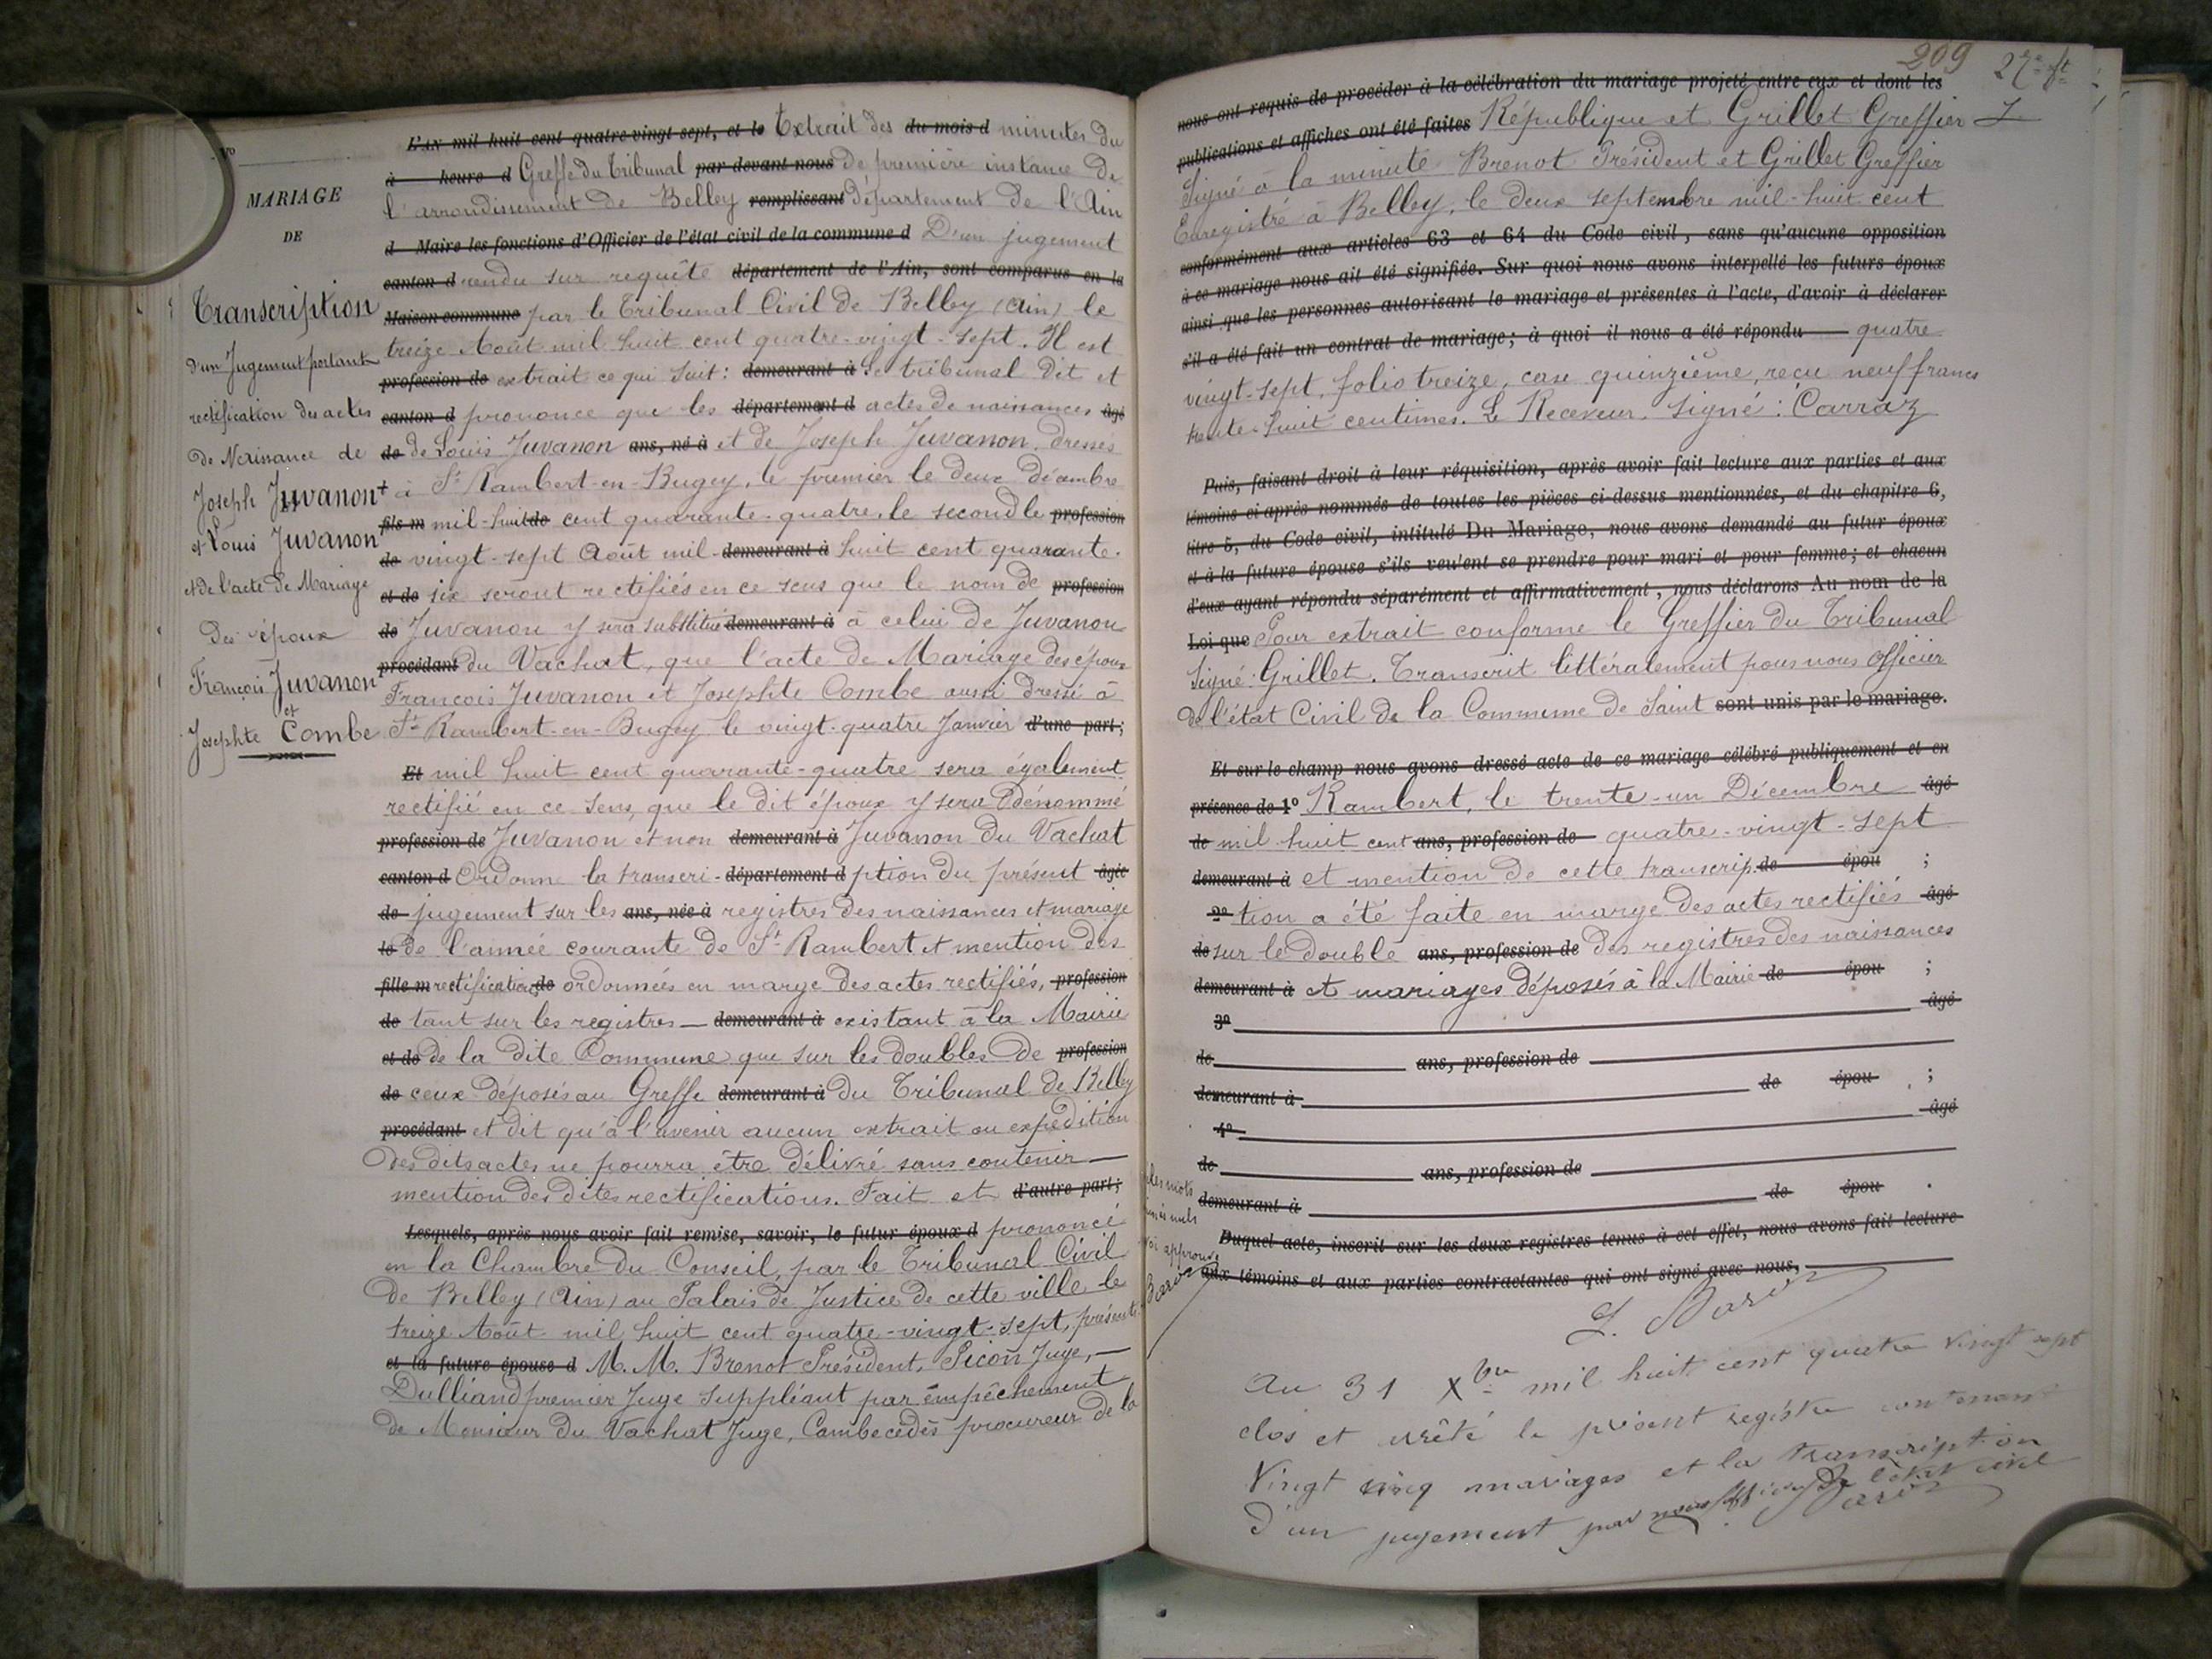 MARIAGE
DE
Transcription
d'un Jugement portant
rectification des actes
de Naissance de
Joseph Juvanon
et Louis Juvanon
et de l'acte de Mariage
des époux
François Juvanon
et
Josephte Combe
L'AN mil huit cent quatre-vingt sept, et le Extrait des du mois d minutes du
à heure d Greffe du Tribunal par devant nous de première instance de
l'arrondissement de Belley remplissant département de l'Ain
d Maire les fonctions d'Officier de l'état civil de la commune d D'un jugement
canton d rendu sur requête département de l'Ain, sont comparus en la
Maison commune par le Tribunal Civil de Belley (Ain) le
treize Août mil huit cent quatre-vingt-sept. Il est
profession de extrait ce qui suit: demeurant à Le tribunal dit et
canton d prononce que les département d actes de naissances âgé
de de Louis Juvanon ans, né à et de Joseph Juvanon, dressés
à St Rambert-en-Bugey, le premier le deux décembre
fils m mil-huit de cent quarante-quatre, le second le profession
de vingt-sept Août mil- demeurant à huit cent quarante-
et de six seront rectifiés en ce sens que le nom de profession
de Juvanon y sera substitué demeurant à à celui de Juvanon
procédant du Vachat, que l'acte de Mariage des époux
François Juvanon et Josephte Combe aussi dressé à
St Rambert-en-Bugey le vingt-quatre Janvier d'une part;
Et mil huit cent quarante-quatre sera également
rectifié en ce sens, que le dit époux y sera dénommé
profession de Juvanon et non demeurant à Juvanon du Vachat
canton d Ordonne la transcri- département d ption du présent âgée
de jugement sur les ans, née à registres des naissances et mariage
le de l'année courante de St Rambert et mention des
fille m rectifications de ordonnées en marge des actes rectifiés, profession
de tant sur les registres demeurant à existant à la Mairie
et de de la dite Commune que sur les doubles de profession
de ceux déposés au Greffe demeurant à du Tribunal de Belley
procédant et dit qu'à l'avenir aucun extrait ou expédition
des dits actes ne pourra être délivré sans contenir
mention des dites rectifications. Fait et d'autre part;
Lesquels, après nous avoir fait remise, savoir, le futur époux d prononcé
en la Chambre du Conseil, par le Tribunal Civil
de Belley (Ain) au Palais de Justice de cette ville le
treize Août mil huit cent quatre-vingt-sept, présents
et la future épouse d M. M. Brenot Président, Picon Juge,
Dulliand premier Juge Suppléant par empêchement
de Monsieur du Vachat Juge, Cambecédès procureur de la
209
nous ont requis de procéder à la célébration du mariage projeté entre eux et dont les
publications et affiches ont été faites République et Grillet Greffier
Signé à la minute Brenot Président et Grillet Greffier
Enregistré à Belley, le deux septembre mil-huit cent
conformément aux articles 63 et 64 du Code civil, sans qu'aucune opposition
à ce mariage nous ait été signifiée. Sur quoi nous avons interpellé les futurs époux
ainsi que les personnes autorisant le mariage et présentes à l'acte, d'avoir à déclarer
s'il a été fait un contrat de mariage; à quoi il nous a été répondu quatre
vingt-sept, folio treize, case quinzième, reçu neuf francs
trente-huit centimes. Le Receveur. signé: Carraz
Puis, faisant droit à leur réquisition, après avoir fait lecture aux parties et aux
témoins ci-après nommés de toutes les pièces ci-dessus mentionnées, et du chapitre 6,
titre 5, du Code civil, intitulé Du Mariage, nous avons demandé au futur époux
et à la future épouse s'ils veulent se prendre pour mari et pour femme; et chacun
d'eux ayant répondu séparément et affirmativement, nous déclarons Au nom de la
Loi que Pour extrait conforme le Greffier du Tribunal
signé: Grillet. Transcrit littéralement par nous Officier
de l'état Civil de la Commune de Saint sont unis par le mariage.
Et sur le champ nous avons dressé acte de ce mariage célébré publiquement et en
présence de 1º Rambert, le trente-un Décembre âgé
de mil huit cent ans, profession de quatre-vingt-sept
demeurant à et mention de cette transcrip- de épou ;
2º tion a été faite en marge des actes rectifiés âgé
de sur le double ans, profession de des registres des naissances
demeurant à et mariages déposés à la Mairie de épou ;
3º âgé
de ans, profession de
demeurant à de épou ;
4º âgé
de ans, profession de
demeurant à de épou .
Duquel acte, inscrit sur les deux registres tenus à cet effet, nous avons fait lecture
aux témoins et aux parties contractantes qui ont signé avec nous,
les mots
nuls
approuvé
Au 31 Xbre mil huit cent quatre vingt sept
clos et arrêté le présent registre contenant
Vingt cinq mariages et la transcription
d'un jugement par nous officier de l'état civil